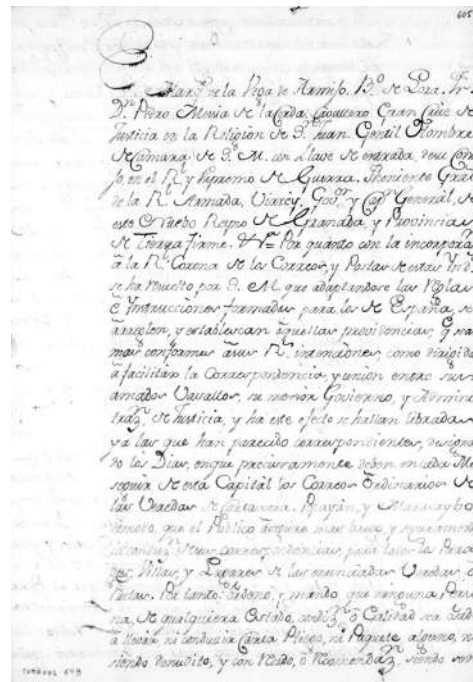 El Marq.s de la Vega de Armijo. B.o de Lora. Fr.
D.n Pedro Mesia de la Cerda, Cavallero Gran Cruz de
Justicia en la Religion de S.n Juan. Gentil Hombre
de Camara de S. M. con Llave de entrada, de su Conse
jo, en el R.l y Supremo de Guerra. Theniente Gral
de la R.l Armada, Virrey, Gov.or y Cap.n General, de
este Nuebo Reyno de Granada, y Provincias
de Tierra firme. &.a Por quanto con la incorpora
à la R.l Corona de los Correos, y Postas de estas Ind.s
se ha resuelto por S. M. que adaptandose las Reglas
è Ynstrucciones formadas para los de España, se
arreglen, y establescan aquellas providencias, q sea
mas conformes à sus R.s intenciones, como dirigida
à facilitar la Correspondencia, y union entre sus
amados Vasallos, su menor Govierno, y Adminis
traz.n de Justicia, y ha este efecto se hallan libradas
ya las que han parecido correspondientes, designan
do los Dias, en que precisamente deben en cada Me
seguir de esta Capital los Correos Ordinarios de
las Veredas de Cartaxena, Popayàn, y Maracaybo
que el Publico
de sus correspondencias para todos los Para
ges, Villas, y Lugares de las enunciadas Veredas ò
Postas. Por tanto: ordeno, y mando, que ninguna Perso
na, de qualquiera Estado, condiz.n ò Calidad sea osad
à llevar, ni conducir Carta Pliego, ni Paquete alguno, n
siendo de oficio, y con siendo sor